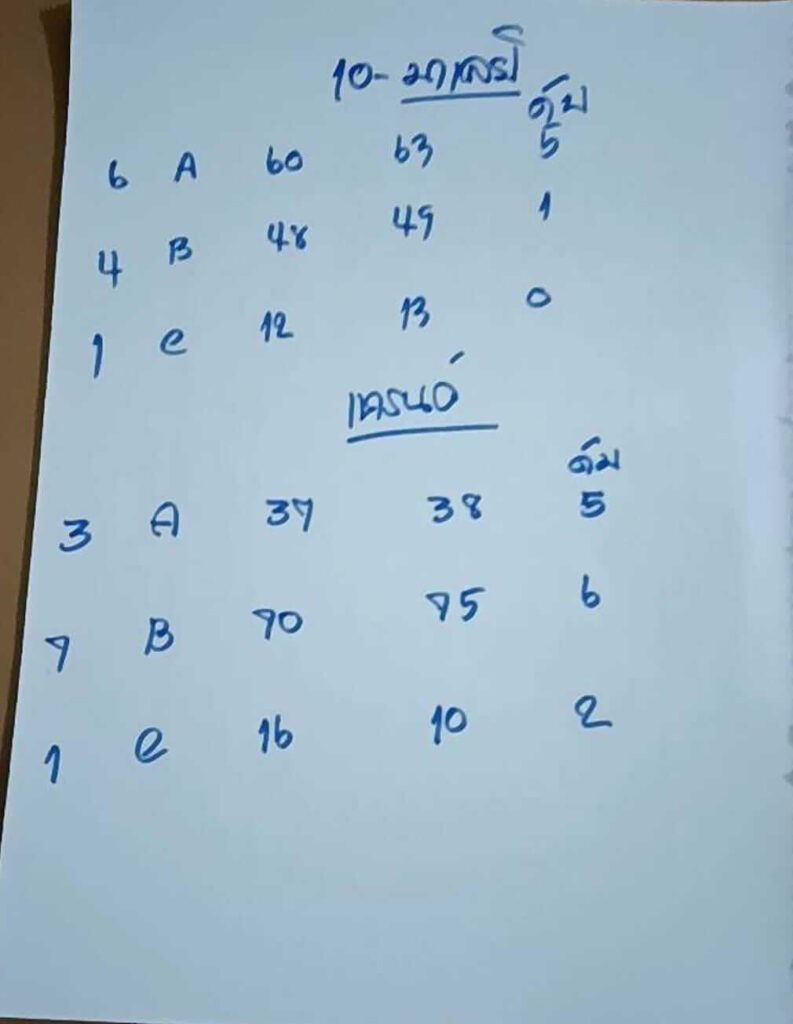 10-มาเลย์
ดัม
6 A 60 63 5
4 B 48 49 1
1 C 12 13 0
เทรนด์
ดัม
3 A 37 38 5
7 B 70 75 6
1 C 16 10 2